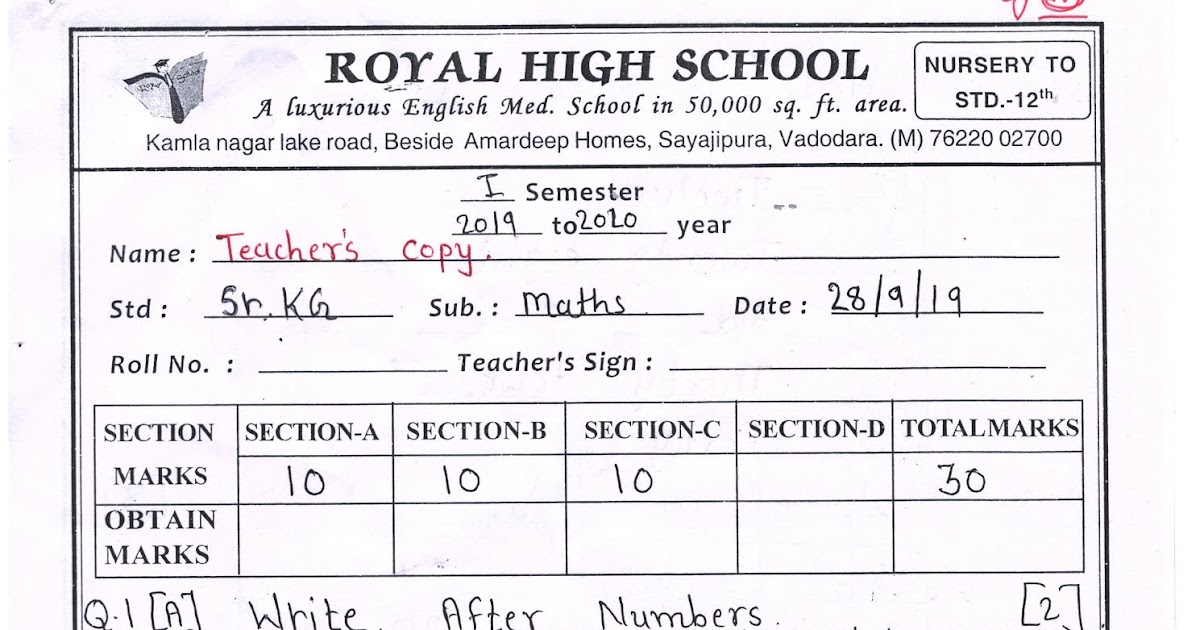 ROYAL HIGH SCHOOL
A luxurious English Med. School in 50,000 sq. ft. area.
NURSERY TO
STD.-12th
Kamla nagar lake road, Beside Amardeep Homes, Sayajipura, Vadodara. (M) 76220 02700
I Semester
2019 to 2020 year
Name : Teacher's copy.
Std : Sr. KG Sub. : Maths Date : 28/9/19
Roll No. : Teacher's Sign :
SECTION SECTION-A SECTION-B SECTION-C SECTION-D TOTAL MARKS
MARKS 10 10 10 30
OBTAIN
MARKS
Q.1 [A] Write After Numbers. [2]